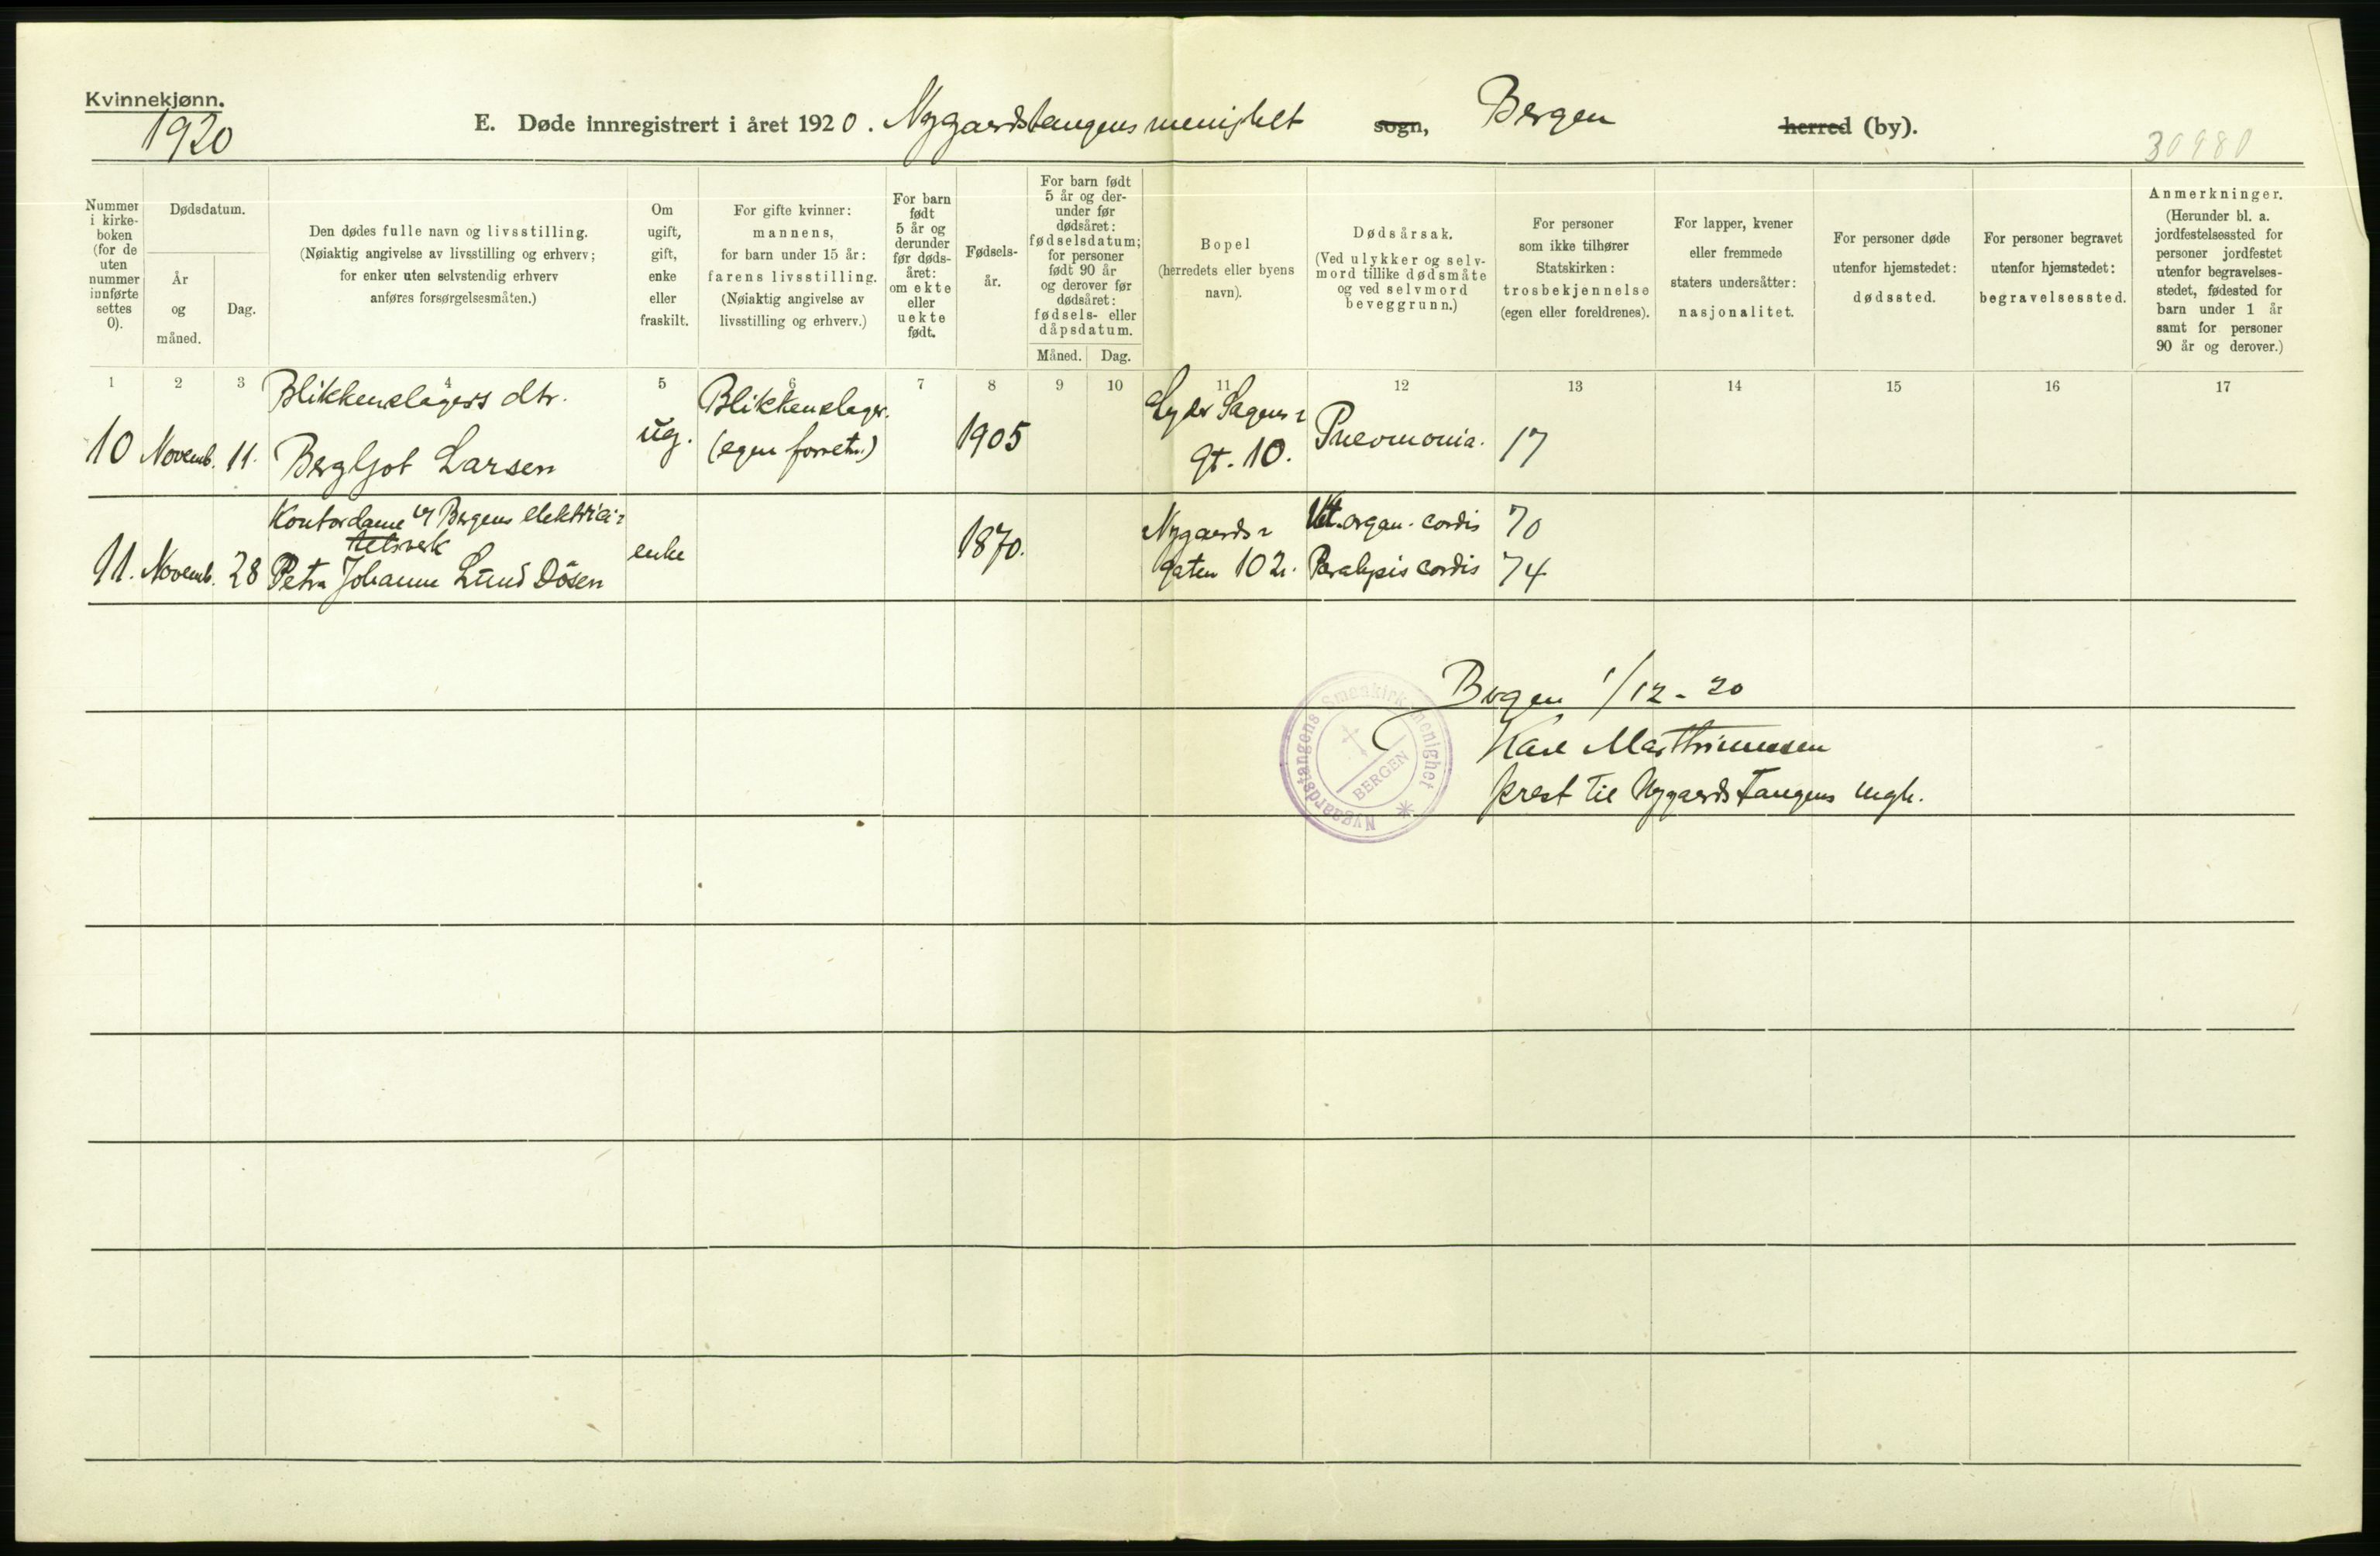 Kvinnekjønn.
1920
E. Døde innregistrert i året 1920. Nygaardstangens menighet sogn, Bergen herred (by).
Nummer i kirke- boken (for de uten nummer innførte settes 0).
Dødsdatum.
År og måned.
Dag.
Den dødes fulle navn og livsstilling.
(Nøiaktig angivelse av livsstilling og erhverv;
for enker uten selvstendig erhverv
anføres forsørgelsesmåten.)
Om
ugift,
gift,
enke
eller
fraskilt.
For gifte kvinner:
mannens,
for barn under 15 år:
farens livsstilling.
(Nøiaktig angivelse av
livsstilling og erhverv.)
For barn
født
5 år og
derunder
før døds-
året:
om ekte
eller
uekte
født.
Fødsels-
år.
For barn født
5 år og der-
under før
dødsåret:
fødselsdatum;
for personer
født 90 år
og derover før
dødsåret:
fødsels- eller
dåpsdatum.
Måned. Dag.
Bopel
(herredets eller byens
navn).
Dødsårsak.
(Ved ulykker og selv-
mord tillike dødsmåte
og ved selvmord
beveggrunn.)
For personer
som ikke tilhører
Statskirken:
trosbekjennelse
(egen eller foreldrenes).
For lapper, kvener
eller fremmede
staters undersåtter:
nasjonalitet.
For personer døde
utenfor hjemstedet:
dødssted.
For personer begravet
utenfor hjemstedet:
begravelsessted.
Anmerkninger.
(Herunder bl. a.
jordfestelsessted for
personer jordfestet
utenfor begravelses-
stedet, fødested for
barn under 1 år
samt for personer
90 år og derover.)
1 2 3 4 5 6 7 8 9 10 11 12 13 14 15 16 17
Blikkenslagers dtr.
10 Novemb. 11. Bergljot Larsen
ug.
Blikkenslager.
(egen forretn.)
1905
Lyder Sagens
gt. 10.
Pneomonia.
17
Kontordame v/ Bergens elektrici-
tetsverk
11. Novemb. 28 Petra Johanne Lund Dösen
enke
1870.
Nygaards
gaten 102.
Vit. organ. cordis
Paralysis cordis
70
74
Nygaardstangens Småkirkemenighet
BERGEN
Bergen 1/12 - 20
Karl Marthinussen
prest til Nygaardstangens mgh.